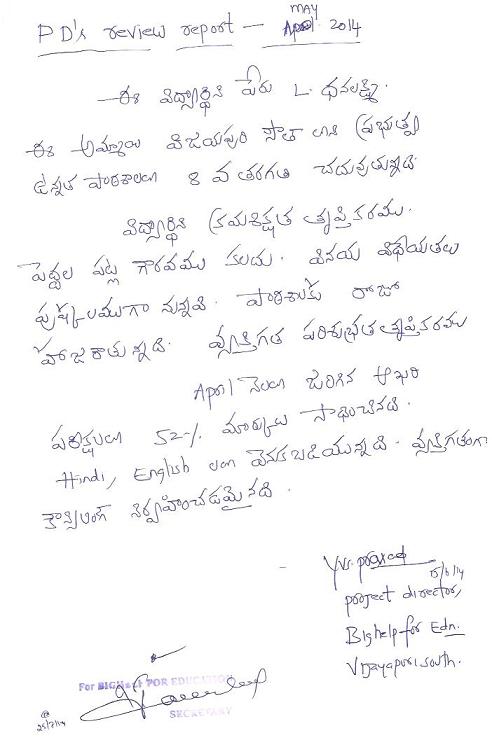 PD's review report — April MAY 2014
ఈ విద్యార్థిని పేరు L. ధనలక్ష్మి.
ఈ అమ్మాయి విజయపురి సౌత్ లోని ప్రభుత్వ
ఉన్నత పాఠశాలలో 8 వ తరగతి చదువుతున్నది.
విద్యార్థిని క్రమశిక్షణ తృప్తికరము.
పెద్దల పట్ల గౌరవము కలదు. వినయ విధేయతలు
పుష్కలముగా నున్నవి. పాఠశాలకు రోజూ
హాజరవుతున్నది. వ్యక్తిగత పరిశుభ్రత తృప్తికరము
April నెలలో జరిగిన ఆఖరి
పరీక్షలలో 52% మార్కులు సాధించినది.
Hindi, English లలో వెనకబడియున్నది. వ్యక్తిగతంగా
కౌన్సిలింగ్ నిర్వహించడమైనది.
15/6/14
project director,
Bighelp for Edn.
Vijayapuri south.
For BIGHELP FOR EDUCATION
SECRETARY
25/7/14